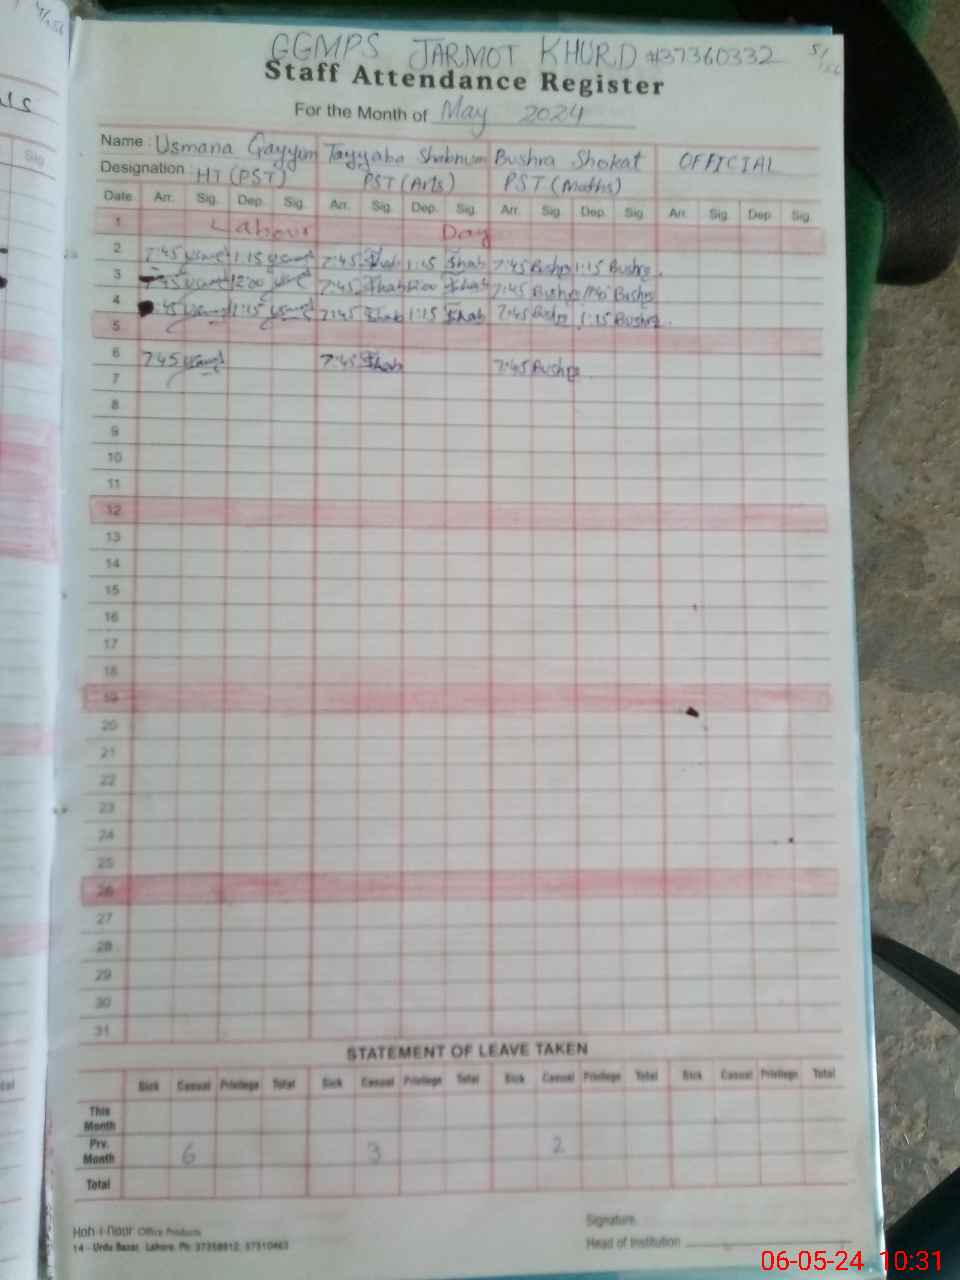 GGMPS JARMOT KHURD #37360332 5/
Staff Attendance Register
For the Month of May 2024
Name : Usmana Gayyum Tayyaba Shabnum Bushra Shokat OFFICIAL
Designation : HT (PST) PST (Arts) PST (Maths)
Date Arr. Sig. Dep. Sig. Arr. Sig. Dep. Sig. Arr. Sig. Dep. Sig. Arr. Sig. Dep. Sig.
1 Labour Day
2 7:45 1:15 7:45 Shab 1:15 Shab 7:45 Bushra 1:15 Bushra
3 7:45 12:00 7:45 Shab 12:00 Shab 7:45 Bushra Bushra
4 :45 1:15 7:45 Shab 1:15 Shab 7:45 Bushra 1:15 Bushra
5
6 7:45 7:45 Shab 7:45 Bushra
7
8
9
10
11
12
13
14
15
16
17
18
19
20
21
22
23
24
25
26
27
28
29
30
31
STATEMENT OF LEAVE TAKEN
Sick Casual Privilege Total Sick Casual Privilege Total Sick Casual Privilege Total Sick Casual Privilege Total
This Month
Prv. Month 6 3 2
Total
Koh-i-Noor Office Products
14 - Urdu Bazar, Lahore. Ph: 37358912, 37310463
Signature
Head of Institution
06-05-24 10:31